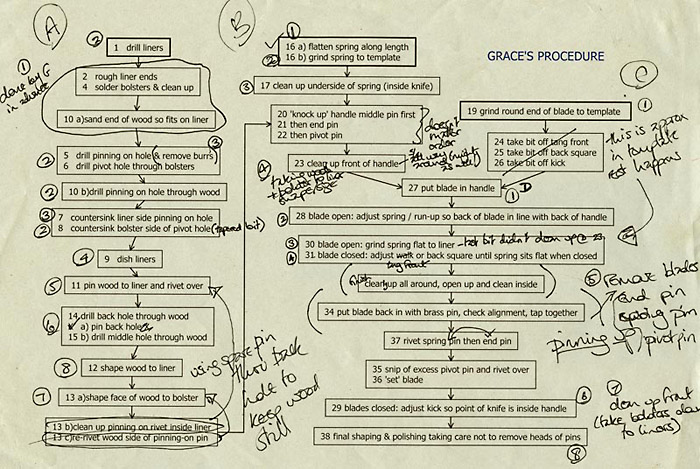 A
B
C
GRACE'S PROCEDURE
1
done by G
in advance
2
1 drill liners
2 rough liner ends
4 solder bolsters & clean up
10 a)sand end of wood so fits on liner
3
2
5 drill pinning on hole & remove burrs
6 drill pivot hole through bolsters
2
10 b)drill pinning on hole through wood
3
2
7 countersink liner side pinning on hole
8 countersink bolster side of pivot hole (tapered bit)
4
9 dish liners
5
11 pin wood to liner and rivet over
6
14 drill back hole through wood
a) pin back hole
15 b) drill middle hole through wood
8
12 shape wood to liner
7
13 a)shape face of wood to bolster
13 b)clean up pinning on rivet inside liner
13 c)re-rivet wood side of pinning-on pin
using spare pin
thro back
hole to
keep wood
still
1
2
16 a) flatten spring along length
16 b) grind spring to template
3
17 clean up underside of spring (inside knife)
20 'knock up' handle middle pin first
21 then end pin
22 then pivot pin
doesn't
matter
order
4
23 clean up front of handle
taking wood
+ bolsters
19 grind round end of blade to template
1
24 take bit off tang front
25 take bit off back square
26 take bit off kick
this is
in template
27 put blade in handle
1
D
2
28 blade open: adjust spring / run-up so back of blade in line with back of handle
3
30 blade open: grind spring flat to liner
4
31 blade closed: adjust or back square until spring sits flat when closed
tang front
clean up all around, open up and clean inside
34 put blade back in with brass pin, check alignment, tap together
5
remove blades
end pin
spring pin
pivot pin
pinning up
37 rivet spring pin then end pin
35 snip of excess pivot pin and rivet over
36 'set' blade
6
29 blades closed: adjust kick so point of knife is inside handle
7
clean up front
(take bolsters down
to liners)
38 final shaping & polishing taking care not to remove heads of pins
8